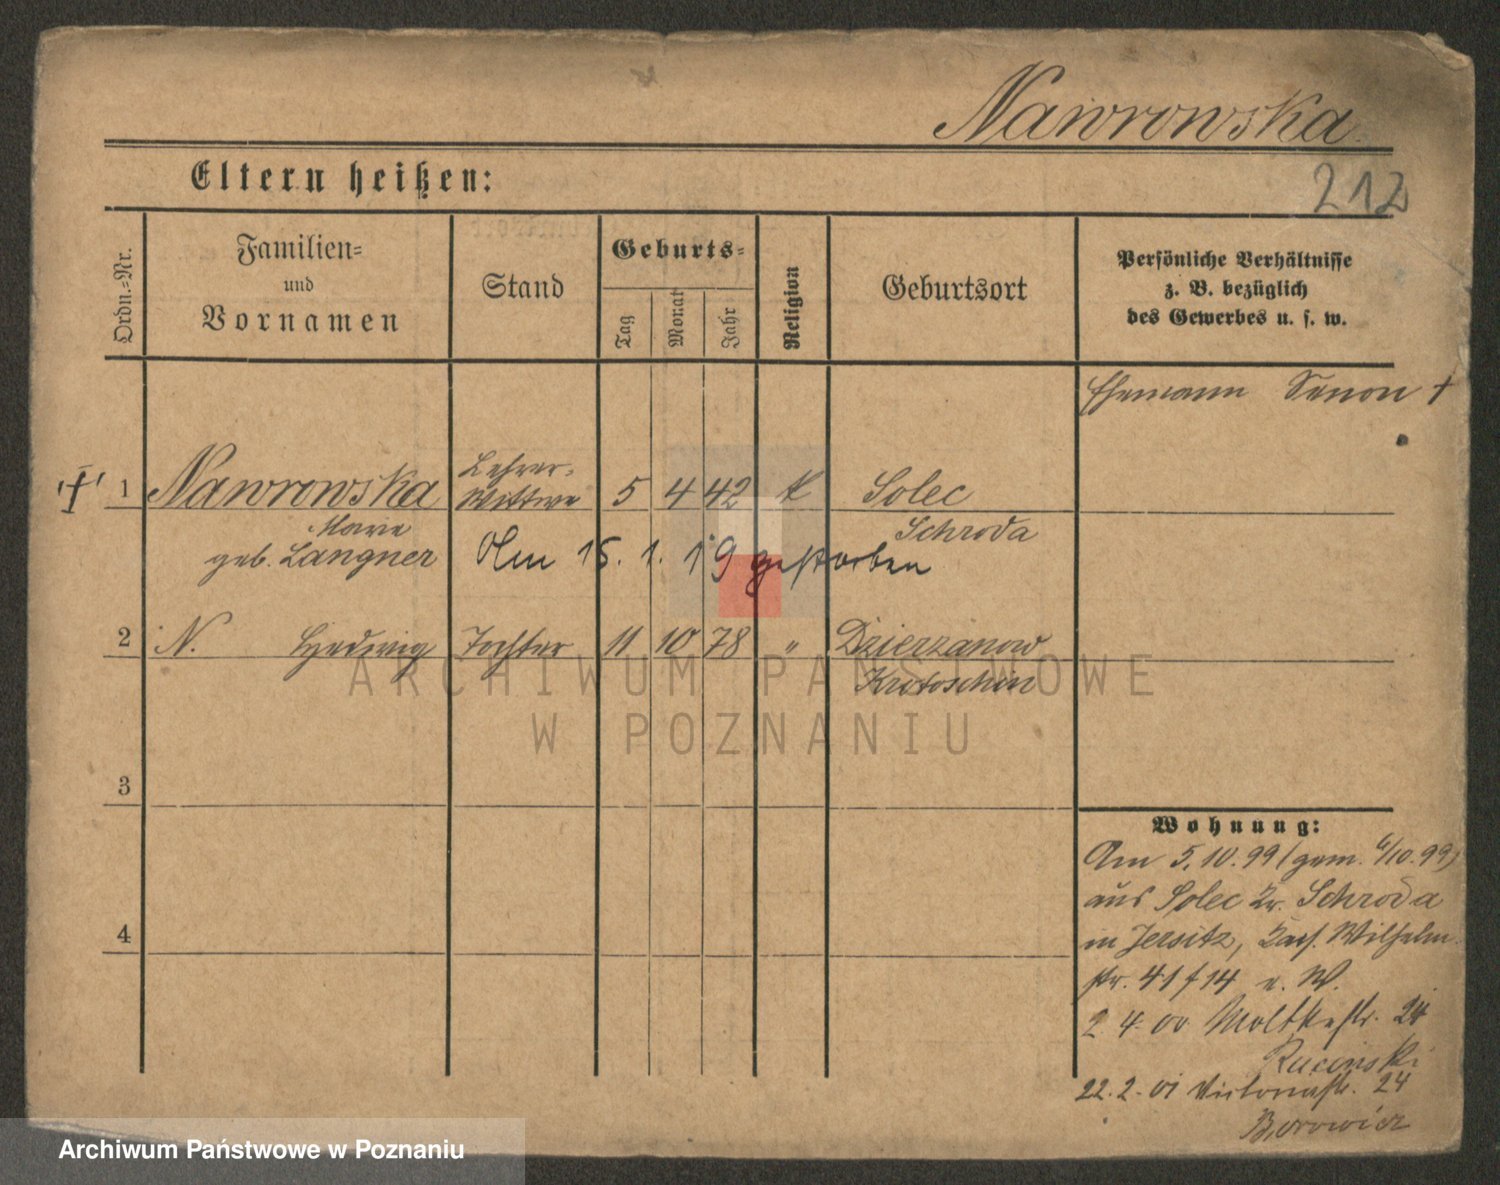 Nawrowska.
212
Eltern heißen:
Ordn.-Nr.
Familien-
und
Vornamen
Stand
Geburts-
Tag
Monat
Jahr
Religion
Geburtsort
Persönliche Verhältnisse
z. B. bezüglich
des Gewerbes u. s. w.
Ehemann Zenon †
† 1 Nawrowska Lehrer-Wittwe 5 4 42 k Solec
Schroda
Marie
geb. Langner
Am 15. 1. 19 gestorben
2 N. Hedwig Tochter 11 10 78 " Dzierzanow
Krotoschin
3
4
Wohnung:
Am 5.10.99 (gem. 6/10.99)
aus Solec Kr. Schroda
in Jersitz, Kais. Wilhelm
str. 41/14 e. W.
2.4.00 Moltkestr. 24
Rucinski
22.2.01 Victoriastr. 24
Borowicz
ARCHIWUM PAŃSTWOWE
W POZNANIU
Archiwum Państwowe w Poznaniu